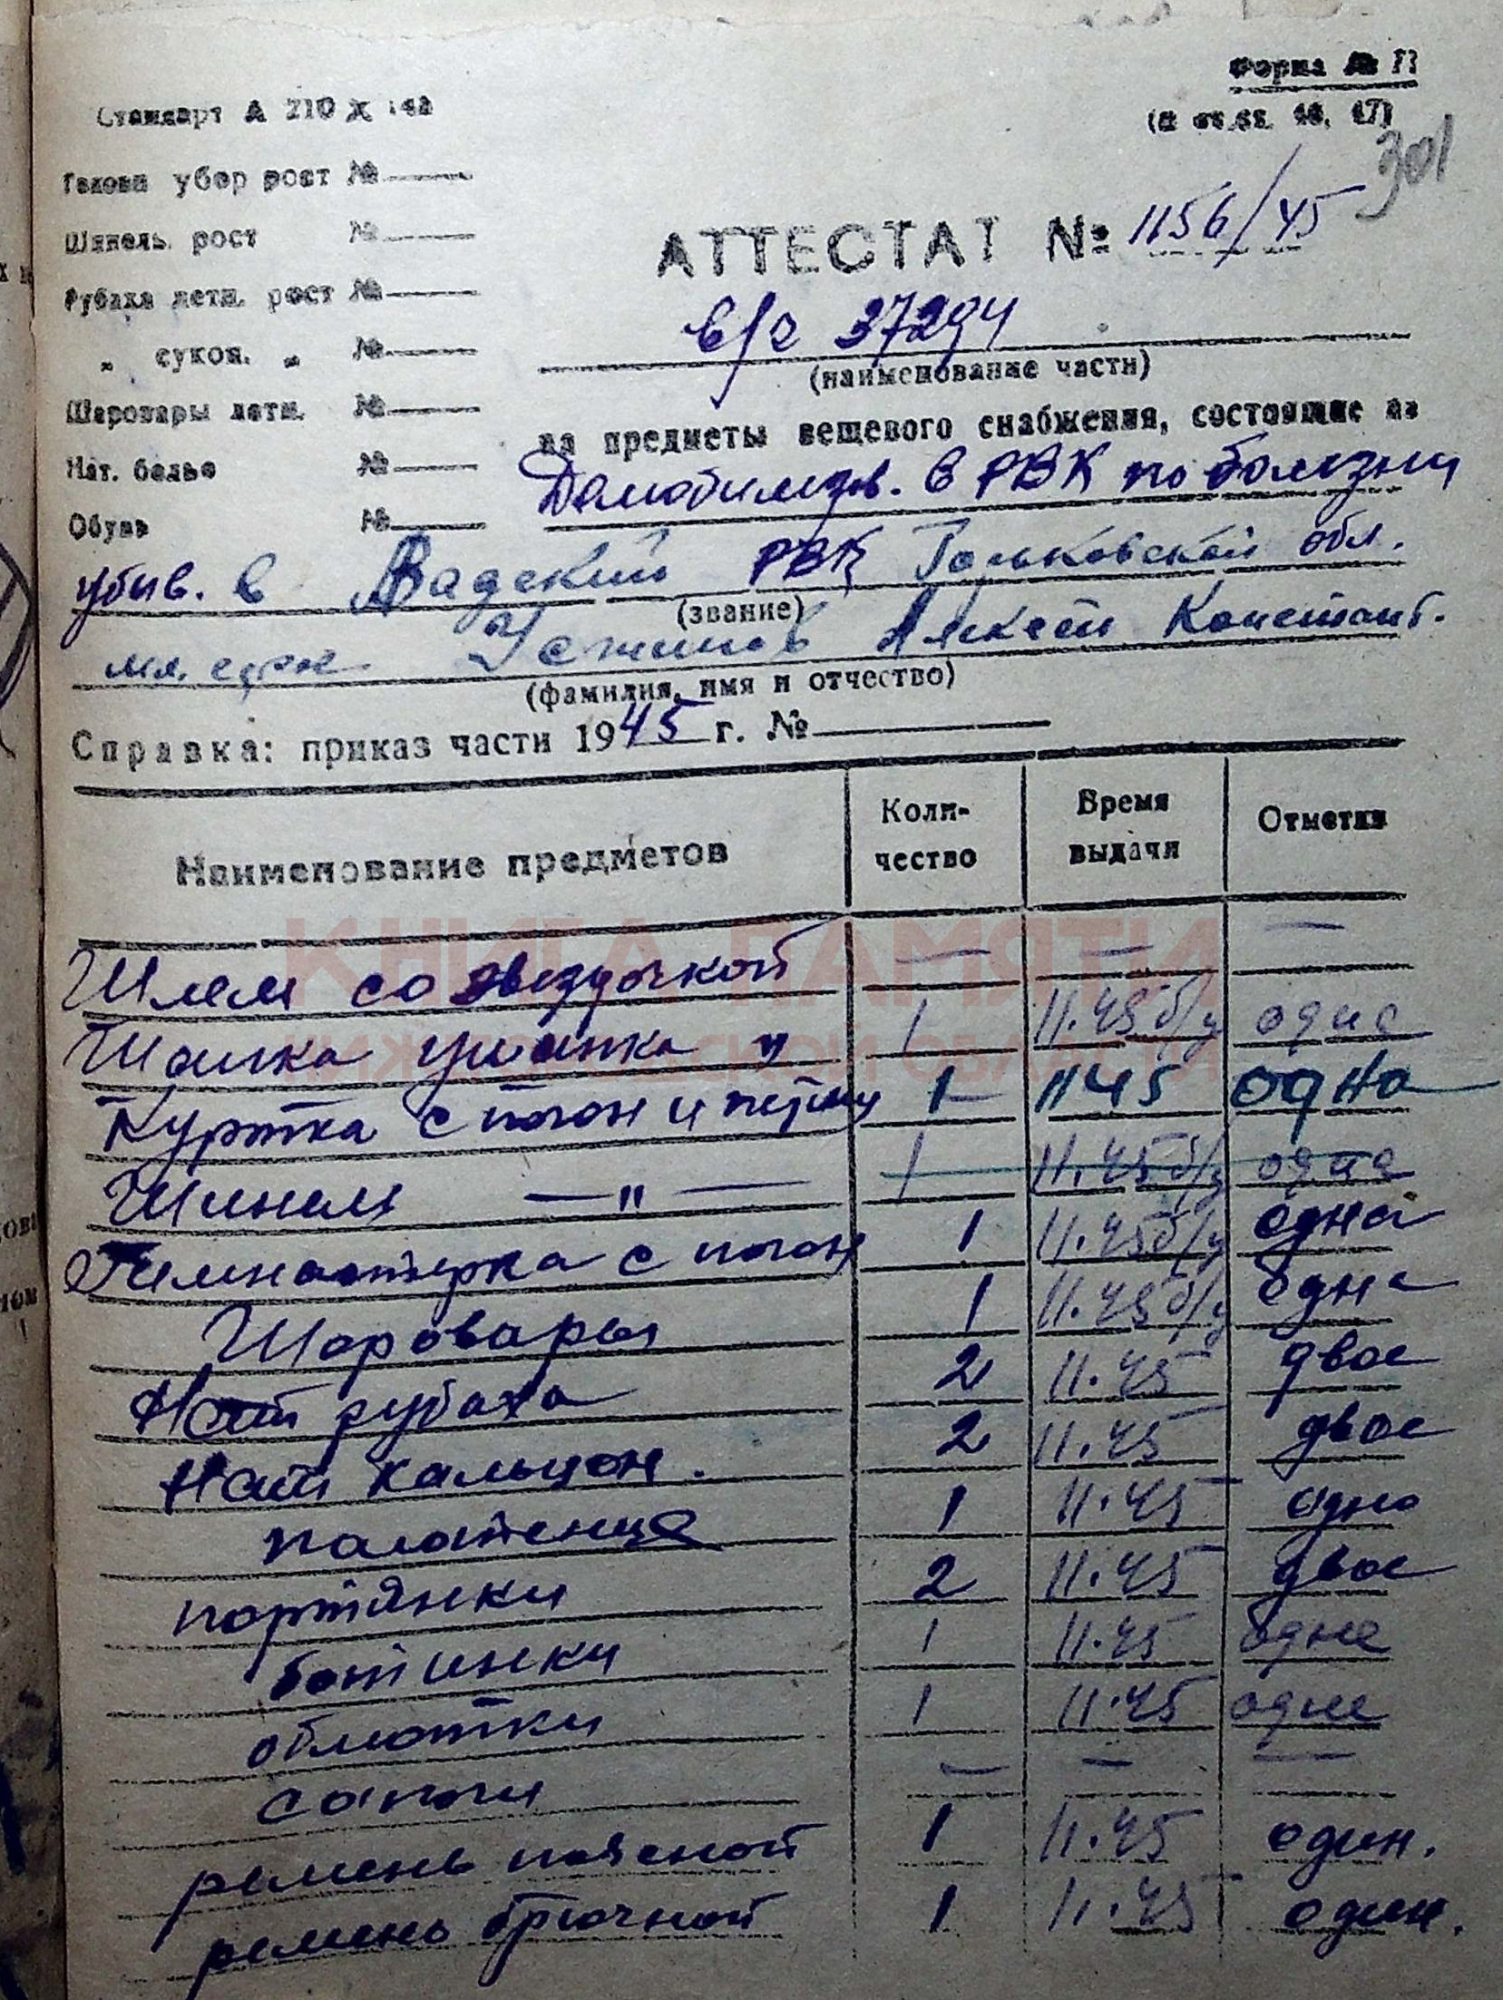 Форма № 11
Стандарт А 210 х 148
(к ст.ст. 46, 47)
301
Головн убор рост №
Шинель. рост №
АТТЕСТАТ № 1156/45
Рубаха летн. рост №
в/ч 37294
„ сукон. „ №
(наименование части)
Шаровары летн. №
на предметы вещевого снабжения, состоящие на
Нат. белье №
Демобилизов. в РВК по болезни
Обувь №
убыв. в Вадский РВК Горьковской обл.
(звание)
мл. серж. Устинов Алексей Констант.
(фамилия, имя и отчество)
Справка: приказ части 1945 г. №
Наименование предметов Коли-чество Время выдачи Отметки
Шлем со звездочкой — — —
Шапка ушанка " 1 11.45 б/у одна
Куртка с погон и петлиц 1 1145 одна
Шинель —"— 1 11.45 б/у одна
Гимнастерка с погон 1 11.45 б/у одна
Шаровары 1 11.45 б/у одна
Нат рубаха 2 11.45 двое
Нат кальсон. 2 11.45 двое
полотенце 1 11.45 одно
портянки 2 11.45 двое
ботинки 1 11.45 одне
обмотки 1 11.45 одне
сапоги — — —
ремень поясной 1 11.45 один.
ремень брючной 1 11.45 один.
КНИГА ПАМЯТИ
НИЖЕГОРОДСКОЙ ОБЛАСТИ